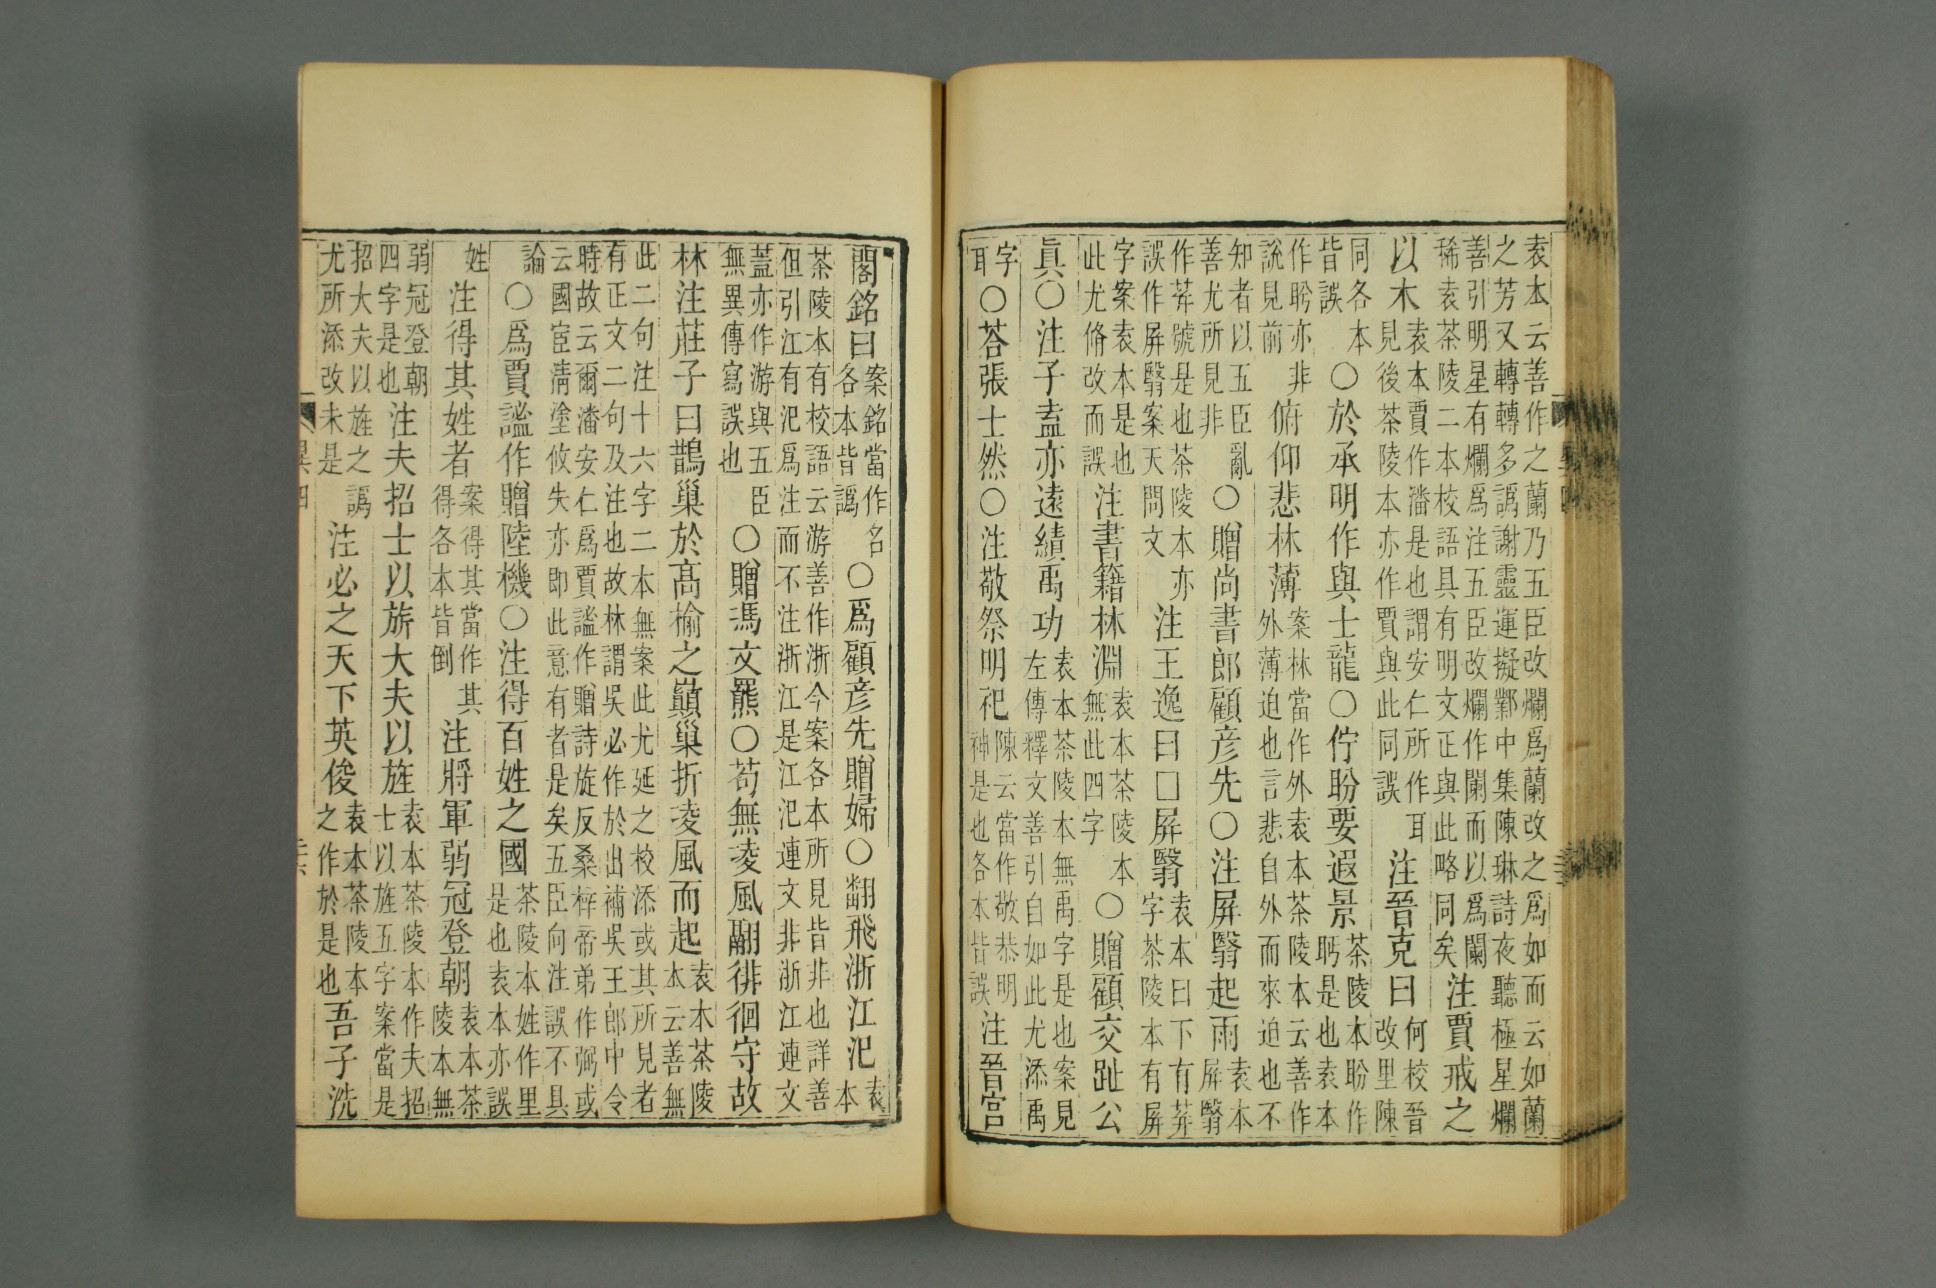 袁本云善作之蘭乃五臣改爛爲蘭改之爲如而云如蘭
之芳又轉轉多譌謝靈運擬鄴中集陳琳詩夜聽極星爛
善引明星有爛爲注五臣改爛作闌而以爲闌稀袁茶陵二本校語具有明文正與此略同矣注賈戒之
以木袁本賈作潘是也謂安仁所作耳見後茶陵本亦作賈與此同誤注晉克曰何校晉改里陳
同各本皆誤○於承明作與士龍○佇盼要遐景茶陵本盼作眄是也袁本
作盻亦非說見前俯仰悲林薄案林當作外袁本茶陵本云善作外薄迫也言悲自外而來迫也不
知者以五臣亂善尤所見非○贈尚書郎顧彥先○注屏翳起雨袁本屏翳
作荓號是也茶陵本亦誤作屏翳案天問文注王逸曰□屏翳袁本曰下有荓字茶陵本有屏
字案袁本是也此尤脩改而誤注書籍林淵袁本茶陵本無此四字○贈顧交趾公
眞○注子盍亦遠績禹功袁本茶陵本無禹字是也案見左傳釋文善引自如此尤添禹
字耳○荅張士然○注敬祭明祀陳云當作敬恭明神是也各本皆誤注晉宮
閣銘曰案銘當作名各本皆譌○爲顧彥先贈婦○翻飛浙江汜袁本
茶陵本有校語云游善作浙今案各本所見皆非也詳善
但引江有汜爲注而不注浙江是江汜連文非浙江連文
蓋亦作游與五臣無異傳寫誤也○贈馮文羆○苟無淩風翮徘徊守故
林注莊子曰鵲巢於高榆之巔巢折淩風而起袁本茶陵本云善無
此二句注十六字二本無案此尤延之校添或其所見者
有正文二句及注也故林謂吳必作於出補吳王郎中令
時故云爾潘安仁爲賈謐作贈詩旋反桑梓帝弟作弼或
云國宦清塗攸失亦即此意有者是矣五臣向注誤不具
論○爲賈謐作贈陸機○注得百姓之國茶陵本姓作里是也袁本亦誤
姓注得其姓者案得其當作其得各本皆倒注將軍弱冠登朝袁本茶陵本無
弱冠登朝四字是也注夫招士以旂大夫以旌袁本茶陵本作夫招士以旌五字案當是
招大夫以旌之譌尤所添改未是注必之天下英俊袁本茶陵本之作於是也吾子洗
異四